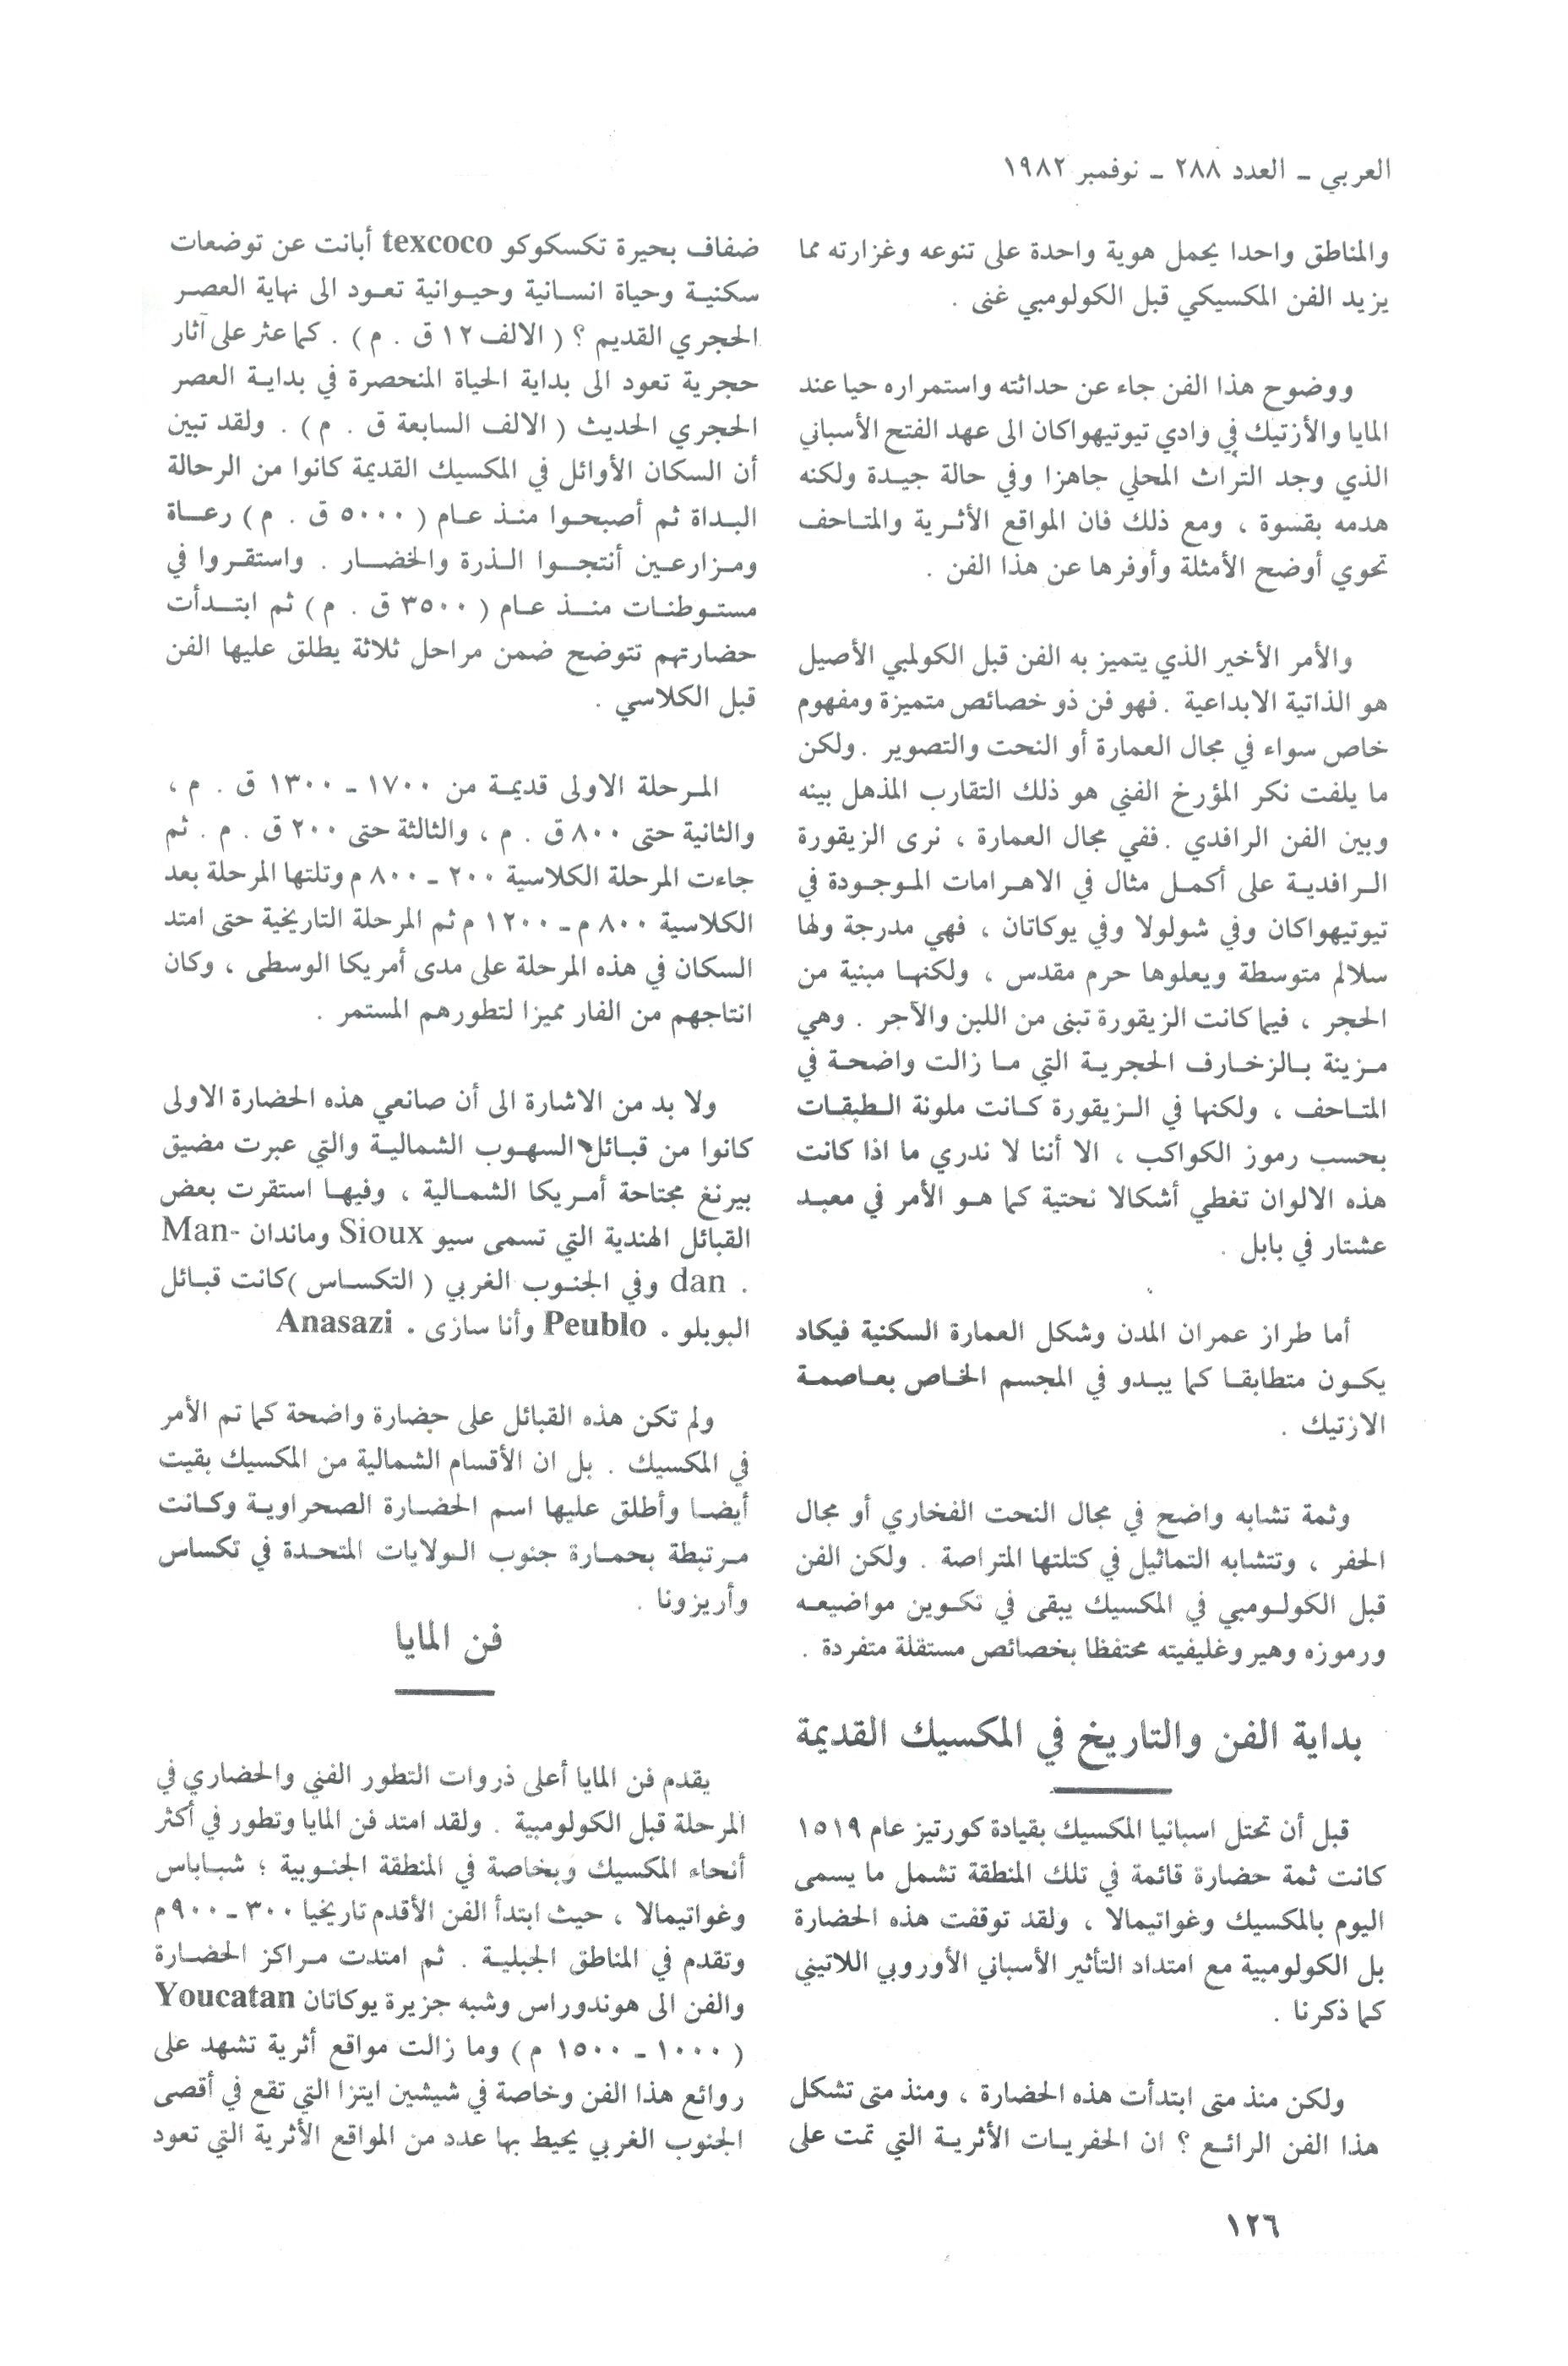 العربي ـ العدد ٢٨٨ ـ نوفمبر ١٩٨٢
والمناطق واحدا يحمل هوية واحدة على تنوعه وغزارته مما
يزيد الفن المكسيكي قبل الكولومبي غنى .
ووضوح هذا الفن جاء عن حداثته واستمراره حيا عند
المايا والأزتيك في وادي تيوتيهواكان الى عهد الفتح الأسباني
الذي وجد التراث المحلي جاهزا وفي حالة جيدة ولكنه
هدمه بقسوة ، ومع ذلك فان المواقع الأثرية والمتاحف
تحوي أوضح الأمثلة وأوفرها عن هذا الفن .
والأمر الأخير الذي يتميز به الفن قبل الكولمبي الأصيل
هو الذاتية الابداعية . فهو فن ذو خصائص متميزة ومفهوم
خاص سواء في مجال العمارة أو النحت والتصوير . ولكن
ما يلفت نكر المؤرخ الفني هو ذلك التقارب المذهل بينه
وبين الفن الرافدي . ففي مجال العمارة ، نرى الزيقورة
الرافدية على أكمل مثال في الاهرامات الموجودة في
تيوتيهواكان وفي شولولا وفي يوكاتان ، فهي مدرجة ولها
سلالم متوسطة ويعلوها حرم مقدس ، ولكنها مبنية من
الحجر ، فيما كانت الزيقورة تبنى من اللبن والآجر . وهي
مزينة بالزخارف الحجرية التي ما زالت واضحة في
المتاحف ، ولكنها في الزيقورة كانت ملونة الطبقات
بحسب رموز الكواكب ، الا أننا لا ندري ما اذا كانت
هذه الالوان تغطي أشكالا نحتية كما هو الأمر في معبد
عشتار في بابل .
أما طراز عمران المدن وشكل العمارة السكنية فيكاد
يكون متطابقا كما يبدو في المجسم الخاص بعاصمة
الازتيك .
وثمة تشابه واضح في مجال النحت الفخاري أو مجال
الحفر ، وتتشابه التماثيل في كتلتها المتراصة . ولكن الفن
قبل الكولومبي في المكسيك يبقى في تكوين مواضيعه
ورموزه وهيروغليفيته محتفظا بخصائص مستقلة متفردة .
بداية الفن والتاريخ في المكسيك القديمة
قبل أن تحتل اسبانيا المكسيك بقيادة كورتيز عام ١٥١٩
كانت ثمة حضارة قائمة في تلك المنطقة تشمل ما يسمى
اليوم بالمكسيك وغواتيمالا ، ولقد توقفت هذه الحضارة
بل الكولومبية مع امتداد التأثير الأسباني الأوروبي اللاتيني
كما ذكرنا .
ولكن منذ متى ابتدأت هذه الحضارة ، ومنذ متى تشكل
هذا الفن الرائع ؟ ان الحفريات الأثرية التي تمت على
ضفاف بحيرة تكسكوكو texcoco أبانت عن توضعات
سكنية وحياة انسانية وحيوانية تعود الى نهاية العصر
الحجري القديم ؟ ( الالف ١٢ ق . م ) . كما عثر على آثار
حجرية تعود الى بداية الحياة المنحصرة في بداية العصر
الحجري الحديث ( الالف السابعة ق . م ) . ولقد تبين
أن السكان الأوائل في المكسيك القديمة كانوا من الرحالة
البداة ثم أصبحوا منذ عام ( ٥٠٠٠ ق . م ) رعاة
ومزارعين أنتجوا الذرة والخضار . واستقروا في
مستوطنات منذ عام ( ٣٥٠٠ ق . م ) ثم ابتدأت
حضارتهم تتوضح ضمن مراحل ثلاثة يطلق عليها الفن
قبل الكلاسي .
المرحلة الاولى قديمة من ١٧٠٠ ـ ١٣٠٠ ق . م ،
والثانية حتى ٨٠٠ ق . م ، والثالثة حتى ٢٠٠ ق . م . ثم
جاءت المرحلة الكلاسية ٢٠٠ ـ ٨٠٠ م وتلتها المرحلة بعد
الكلاسية ٨٠٠ م ـ ١٢٠٠ م ثم المرحلة التاريخية حتى امتد
السكان في هذه المرحلة على مدى أمريكا الوسطى ، وكان
انتاجهم من الفار مميزا لتطورهم المستمر .
ولا بد من الاشارة الى أن صانعي هذه الحضارة الاولى
كانوا من قبائل السهوب الشمالية والتي عبرت مضيق
بيرنغ مجتاحة أمريكا الشمالية ، وفيها استقرت بعض
القبائل الهندية التي تسمى سيو Sioux وماندان Man-
dan . وفي الجنوب الغربي ( التكساس ) كانت قبائل
البوبلو . Peublo وأنا سازى . Anasazi
ولم تكن هذه القبائل على حضارة واضحة كما تم الأمر
في المكسيك . بل ان الأقسام الشمالية من المكسيك بقيت
أيضا وأطلق عليها اسم الحضارة الصحراوية وكانت
مرتبطة بحمارة جنوب الولايات المتحدة في تكساس
وأريزونا .
فن المايا
يقدم فن المايا أعلى ذروات التطور الفني والحضاري في
المرحلة قبل الكولومبية . ولقد امتد فن المايا وتطور في أكثر
أنحاء المكسيك وبخاصة في المنطقة الجنوبية ؛ شباباس
وغواتيمالا ، حيث ابتدأ الفن الأقدم تاريخيا ٣٠٠ ـ ٩٠٠ م
وتقدم في المناطق الجبلية . ثم امتدت مراكز الحضارة
والفن الى هوندوراس وشبه جزيرة يوكاتان Youcatan
( ١٠٠٠ ـ ١٥٠٠ م ) وما زالت مواقع أثرية تشهد على
روائع هذا الفن وخاصة في شيشين ايتزا التي تقع في أقصى
الجنوب الغربي يحيط بها عدد من المواقع الأثرية التي تعود
١٢٦